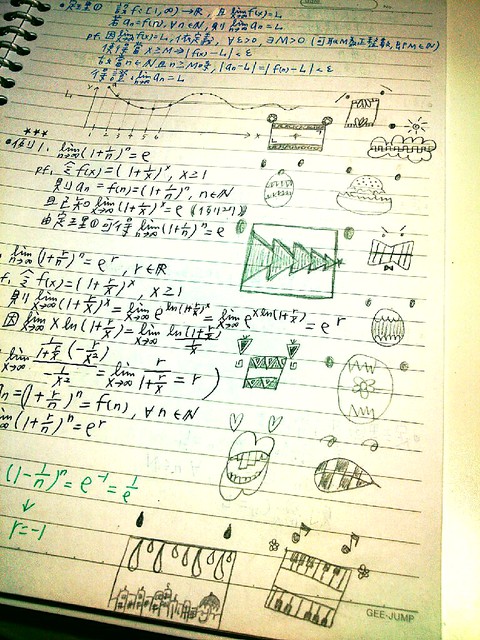 定理① 設 f:[1,∞)→ℝ, 且 lim_{x→∞} f(x)=L
若 a_n=f(n), ∀n∈ℕ, 則 lim_{n→∞} a_n=L
pf. 因 lim_{x→∞} f(x)=L, 依定義, ∀ε>0, ∃M>0 (可取M為正整數, 即M∈ℕ)
使得當 x≥M → |f(x)-L|<ε
故當 n∈ℕ且n≥M時, |a_n-L|=|f(n)-L|<ε
得證 lim_{n→∞} a_n=L
L
1 2 3 4 5 6
x
***
例 1. lim_{n→∞}(1+1/n)^n=e
pf. 令 f(x)=(1+1/x)^x, x≥1
則 a_n=f(n)=(1+1/n)^n, n∈ℕ
且已知 lim_{x→∞}(1+1/x)^x=e
由定理①可得 lim_{n→∞}(1+1/n)^n=e
lim_{n→∞}(1+r/n)^n=e^r, r∈ℝ
pf. 令 f(x)=(1+r/x)^x, x≥1
則 lim_{x→∞}(1+r/x)^x=lim_{x→∞} e^{ln(1+r/x)^x}=lim_{x→∞} e^{x ln(1+r/x)}=e^r
因 lim_{x→∞} x ln(1+r/x)=lim_{x→∞} ln(1+r/x)/(1/x)
lim_{x→∞} (1/(1+r/x)(-r/x²))/(-1/x²)=lim_{x→∞} r/(1+r/x)=r)
a_n=(1+r/n)^n=f(n), ∀n∈ℕ
lim(1+r/n)^n=e^r
(1-1/n)^n=e^{-1}=1/e
↓
r=-1
GEE-JUMP